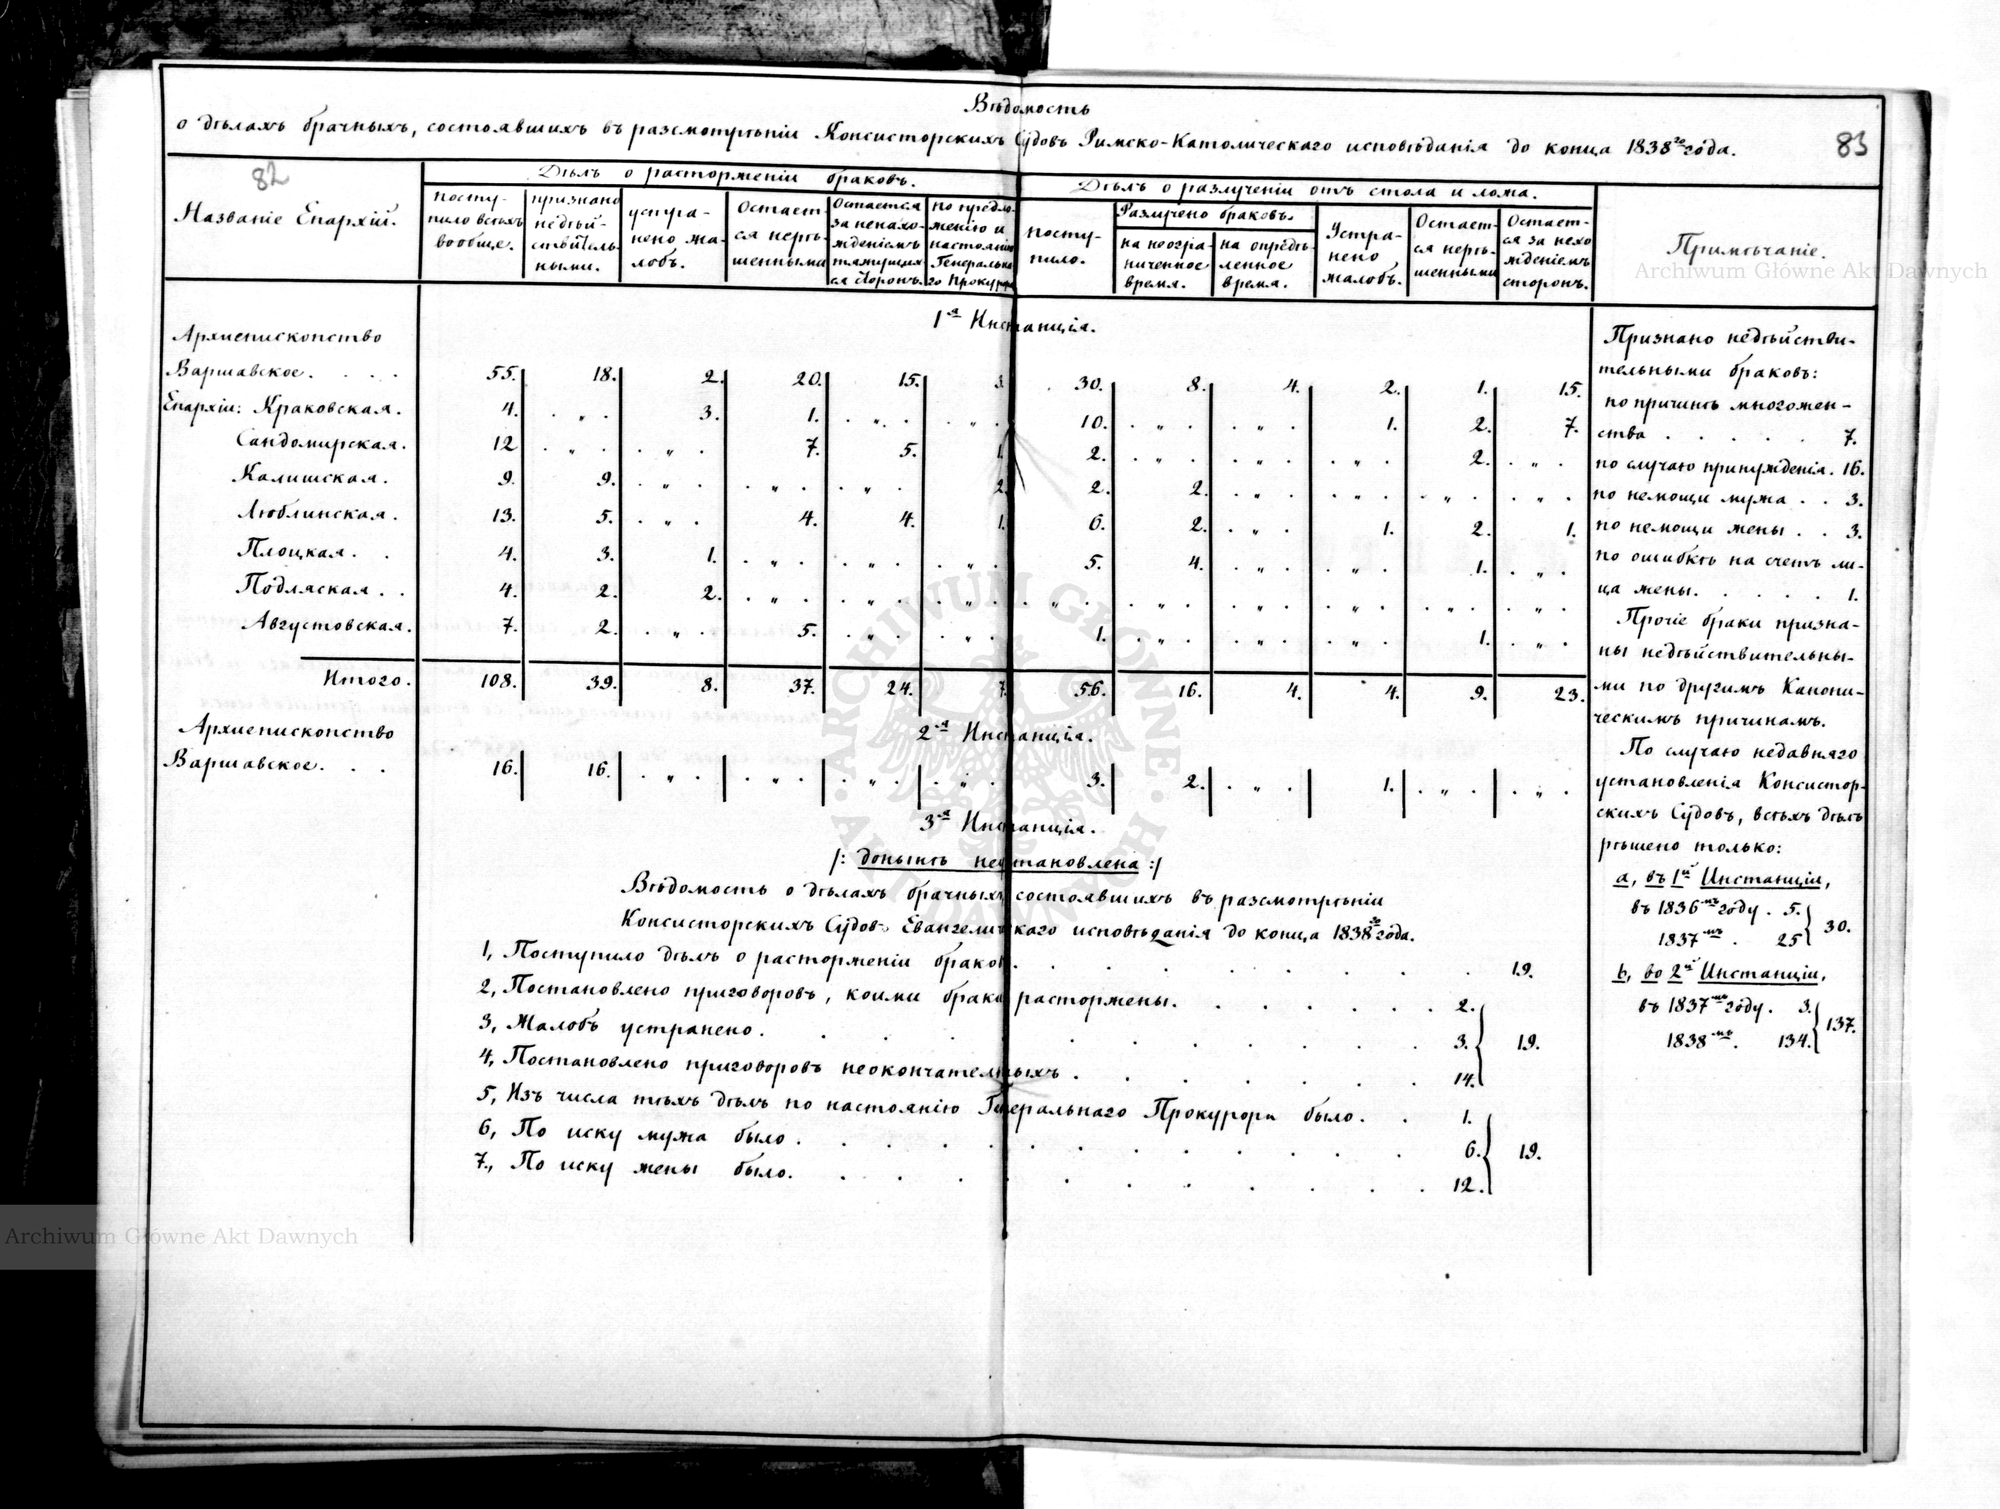 Вѣдомость
о дѣлахъ брачныхъ, состоявшихъ въ разсмотрѣніи Консисторскихъ Судовъ Римско-Католическаго исповѣданія до конца 1838го года.
83
82
Названіе Епархій.
Дѣлъ о расторженіи браковъ.
Дѣлъ о разлученіи отъ стола и ложа.
Примѣчаніе.
посту-
пило всѣхъ
вообще.
признано
недѣй-
стви́тель-
ными.
устра-
нено жа-
лобъ.
Остает-
ся нерѣ-
шенными
Остается
за ненахо-
жденіемъ
тяжущих-
ся Сторонъ.
по предло-
женію и
настоянію
Генерально-
го Прокурора
посту-
пило.
Разлучено браковъ.
на неогра-
ниченное
время.
на опредѣ-
ленное
время.
Устра-
нено
жалобъ.
Остает-
ся нерѣ-
шенными
Остает-
ся за нехо
жденіемъ
сторонъ.
1я Инстанція.
Архиепископство
Варшавское. . . . 55. 18. 2. 20. 15. 3. 30. 8. 4. 2. 1. 15.
Епархіи: Краковская. 4. . „ . 3. 1. . „ . . „ . 10. . „ . . „ . 1. 2. 7.
Сандомирская. 12 . „ . . „ . 7. 5. 1. 2. . „ . . „ . . „ . 2. . „ .
Калишская. 9. 9. . „ . . „ . . „ . 2. 2. 2. . „ . . „ . . „ . . „ .
Люблинская. 13. 5. . „ . 4. 4. 1. 6. 2. . „ . 1. 2. 1.
Плоцкая. . . 4. 3. 1. . „ . . „ . . „ . 5. 4. . „ . . „ . 1. . „ .
Подляская. . 4. 2. 2. . „ . . „ . . „ . . „ . . „ . . „ . . „ . . „ . . „ .
Августовская. 7. 2. . „ . 5. . „ . . „ . 1. . „ . . „ . . „ . 1. . „ .
Итого. 108. 39. 8. 37. 24. 7. 56. 16. 4. 4. 9. 23.
2я Инстанція.
Архиепископство
Варшавское. . . 16. 16. . „ . . „ . . „ . . „ . 3. 2. . „ . 1. . „ . . „ .
3я Инстанція.
/: донынѣ неустановлена :/
Вѣдомость о дѣлахъ брачныхъ состоявшихъ въ разсмотрѣніи
Консисторскихъ Судовъ Евангелическаго исповѣданія до конца 1838го года.
1, Поступило дѣлъ о расторженіи браковъ. . . . . . . . . 19.
2, Постановлено приговоровъ, коими браки расторжены. . . . . . . 2.
3, Жалобъ устранено. . . . . . . . . . 3. } 19.
4, Постановлено приговоровъ неокончательныхъ . . . . . . . 14.
5, Изъ числа тѣхъ дѣлъ по настоянію Генеральнаго Прокурора было. . 1.
6, По иску мужа было . . . . . . . . . . 6. } 19.
7, По иску жены было. . . . . . . . . . 12.
Признано недѣйстви-
тельными браковъ:
по причинѣ многожен-
ства . . . . . 7.
по случаю принужденія. 16.
по немощи мужа . . 3.
по немощи жены . . 3.
по ошибкѣ на счетъ ли-
ца жены. . . . . 1.
Прочіе браки призна-
ны недѣйствительны-
ми по другимъ Канони-
ческимъ причинамъ.
По случаю недавняго
установленія Консистор-
скихъ Судовъ, всѣхъ дѣлъ
рѣшено только:
а, въ 1й Инстанціи,
въ 1836мъ году . 5. } 30.
1837мъ . 25
b, во 2й Инстанціи,
въ 1837мъ году. 3. } 137.
1838мъ . 134.
Archiwum Główne Akt Dawnych
ARCHIWUM GŁÓWNE AKT DAWNYCH
Archiwum Główne Akt Dawnych